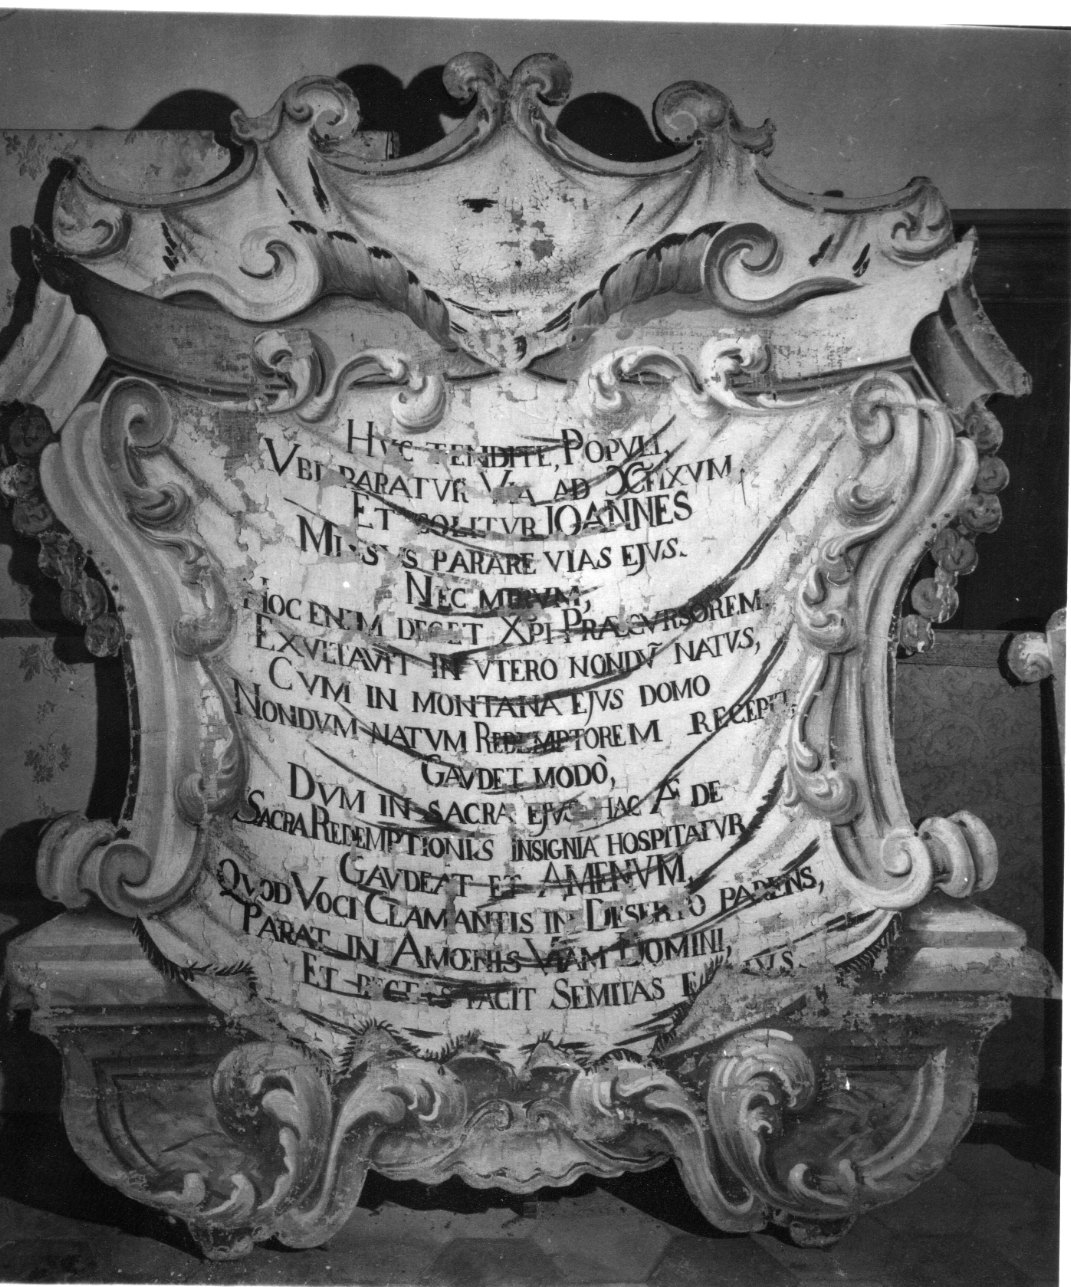 HVC TENDITE, POPVLI,
VBI PARATVR VIA AD XFIXVM
ET COLITVR IOANNES
MISSVS PARARE VIAS EJVS.
NEC MIRVM,
HOC ENIM DECET XPI PRÆCVRSOREM
EXVLTAVIT IN VTERO NONDV̄ NATVS,
CVM IN MONTANA EJVS DOMO
NONDVM NATVM REDEMPTOREM RECEPIT
GAVDET MODÒ,
DVM IN SACRA EJVS HAC ÆDE
SACRA REDEMPTIONIS INSIGNIA HOSPITATVR
GAVDEAT ET AMENVM,
QVOD VOCI CLAMANTIS IN DESERTO PARENS,
PARAT IN AMOENIS VIAM DOMINI,
ET RECTAS FACIT SEMITAS EJVS